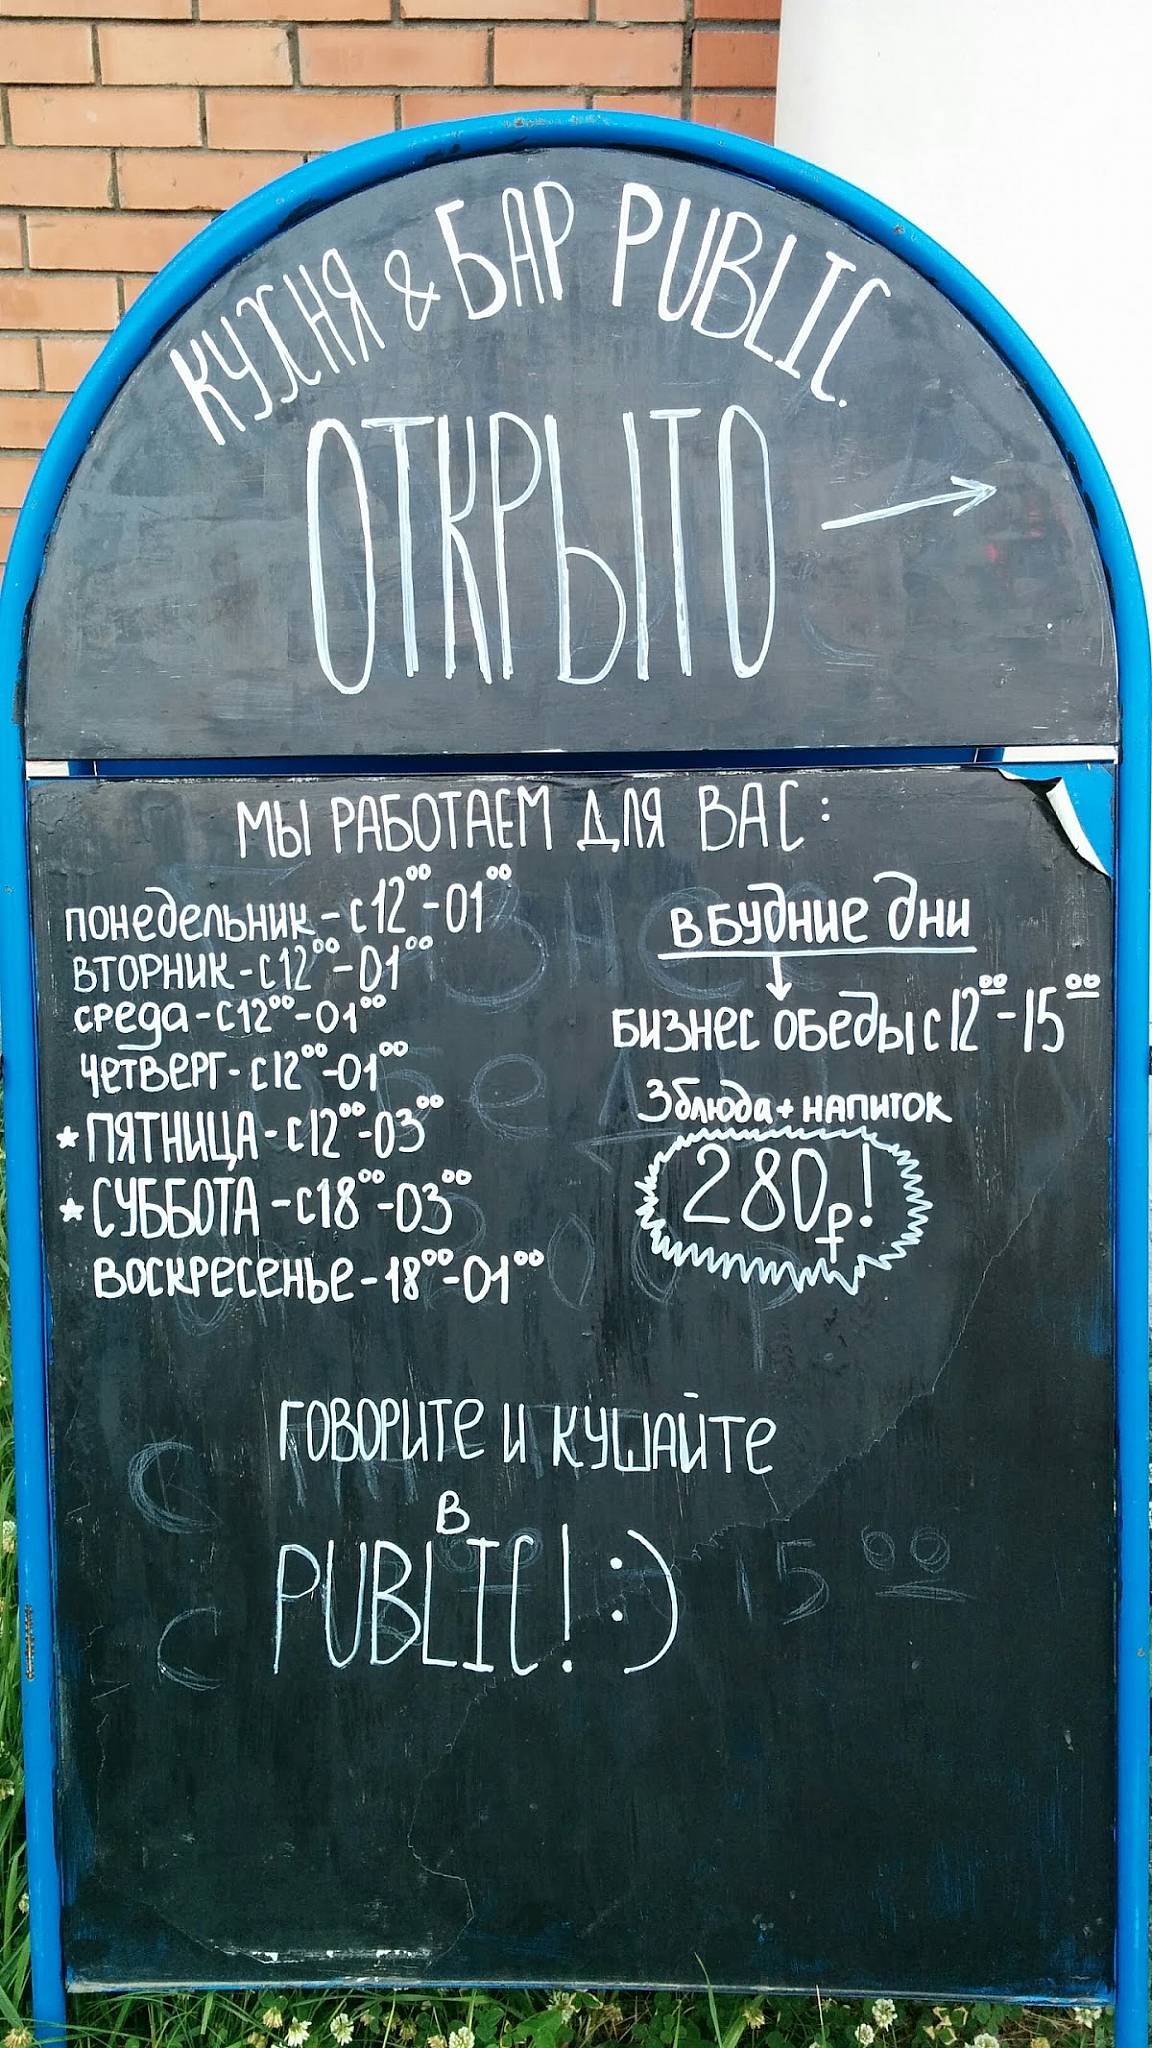 КУХНЯ & БАР PUBLIC.
ОТКРЫТО →
МЫ РАБОТАЕМ ДЛЯ ВАС:
ПОНЕДЕЛЬНИК - С 12⁰⁰-01⁰⁰
ВТОРНИК - С 12⁰⁰-01⁰⁰
СРЕДА - С 12⁰⁰-01⁰⁰
ЧЕТВЕРГ - С 12⁰⁰-01⁰⁰
* ПЯТНИЦА - С 12⁰⁰-03⁰⁰
* СУББОТА - С 18⁰⁰-03⁰⁰
ВОСКРЕСЕНЬЕ - 18⁰⁰-01⁰⁰
В БУДНИЕ ДНИ
БИЗНЕС ОБЕДЫ С 12⁰⁰-15⁰⁰
3 блюда + НАПИТОК
280₽!
ГОВОРИТЕ И КУШАЙТЕ
В
PUBLIC! :)
15⁰⁰